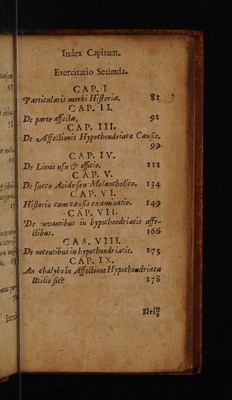 Index Capitum.
Exercitatio Secunda.
CAP. I
Particularis morbi Historia. 81
CAP. II.
De parte affecta, 91
CAP. III.
De Affectionis Hypochondriatæ Causis.
99
CAP. IV.
De Lienis usu & officio. 111
CAP. V.
De succo Acido seu Melancholico. 134
CAP. VI.
Historiæ cum causis examinatio. 149
CAP. VII.
De juvantibus in hypochondriacis affe-
ctibus. 166
CAA. VIII.
De nocentibus in hypochondriacis. 175
CAP. IX.
An chalybs in Affectione Hypochondriaca
utilis sit? 178